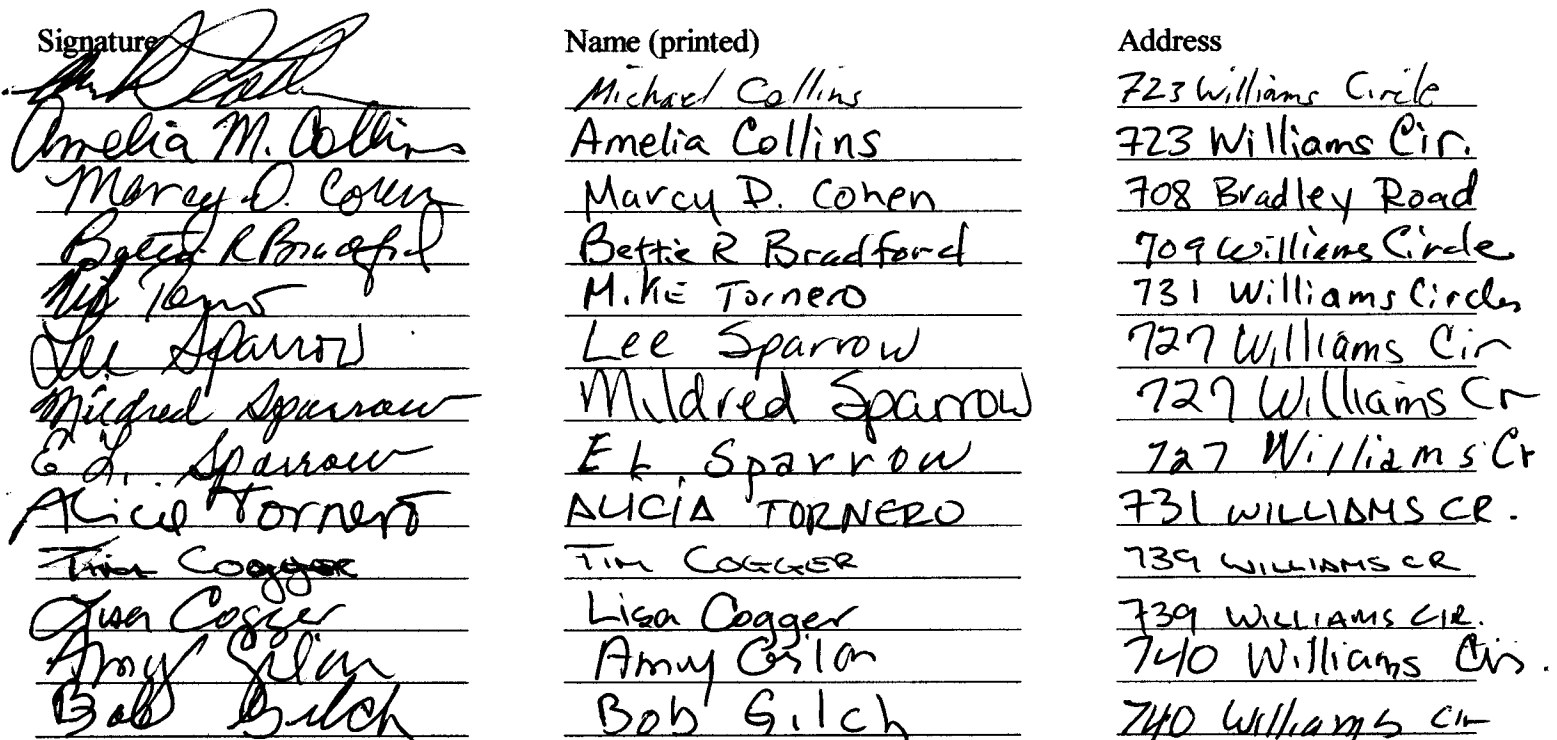 Signature Name (printed) Address
Michael Collins 723 Williams Circle
Amelia M. Collins Amelia Collins 723 Williams Cir.
Marcy D. Cohen Marcy D. Cohen 708 Bradley Road
Bettie R Bradford Bettie R Bradford 709 Williams Circle
Mike Tornero 731 Williams Circle
Lee Sparrow Lee Sparrow 727 Williams Cir
Mildred Sparrow Mildred Sparrow 727 Williams Cr
E L. Sparrow E L. Sparrow 727 Williams Cr
Alicia Tornero ALICIA TORNERO 731 WILLIAMS CR.
Tim Cogger TIM COGGER 739 WILLIAMS CR
Lisa Cogger Lisa Cogger 739 WILLIAMS CIR.
Amy Amy 740 Williams Cir.
Bob Gilch Bob Gilch 740 Williams Cir